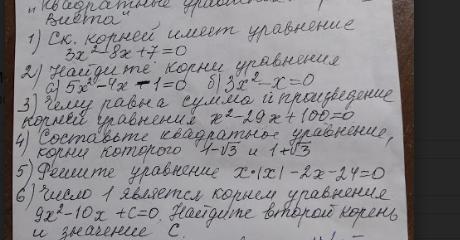 "Квадратные уравнения
Виета"
1) Ск. корней имеет уравнение
3x²-8x+7=0
2) Найдите корни уравнения
а) 5x²-4x-1=0 б) 3x²-x=0
3) Чему равна сумма и произведение
корней уравнения x²-29x+100=0
4) Составьте квадратное уравнение,
корни которого 1-√3 и 1+√3
5) Решите уравнение x·|x|-2x-24=0
6) Число 1 является корнем уравнения
9x²-10x+c=0. Найдите второй корень
и значение С.